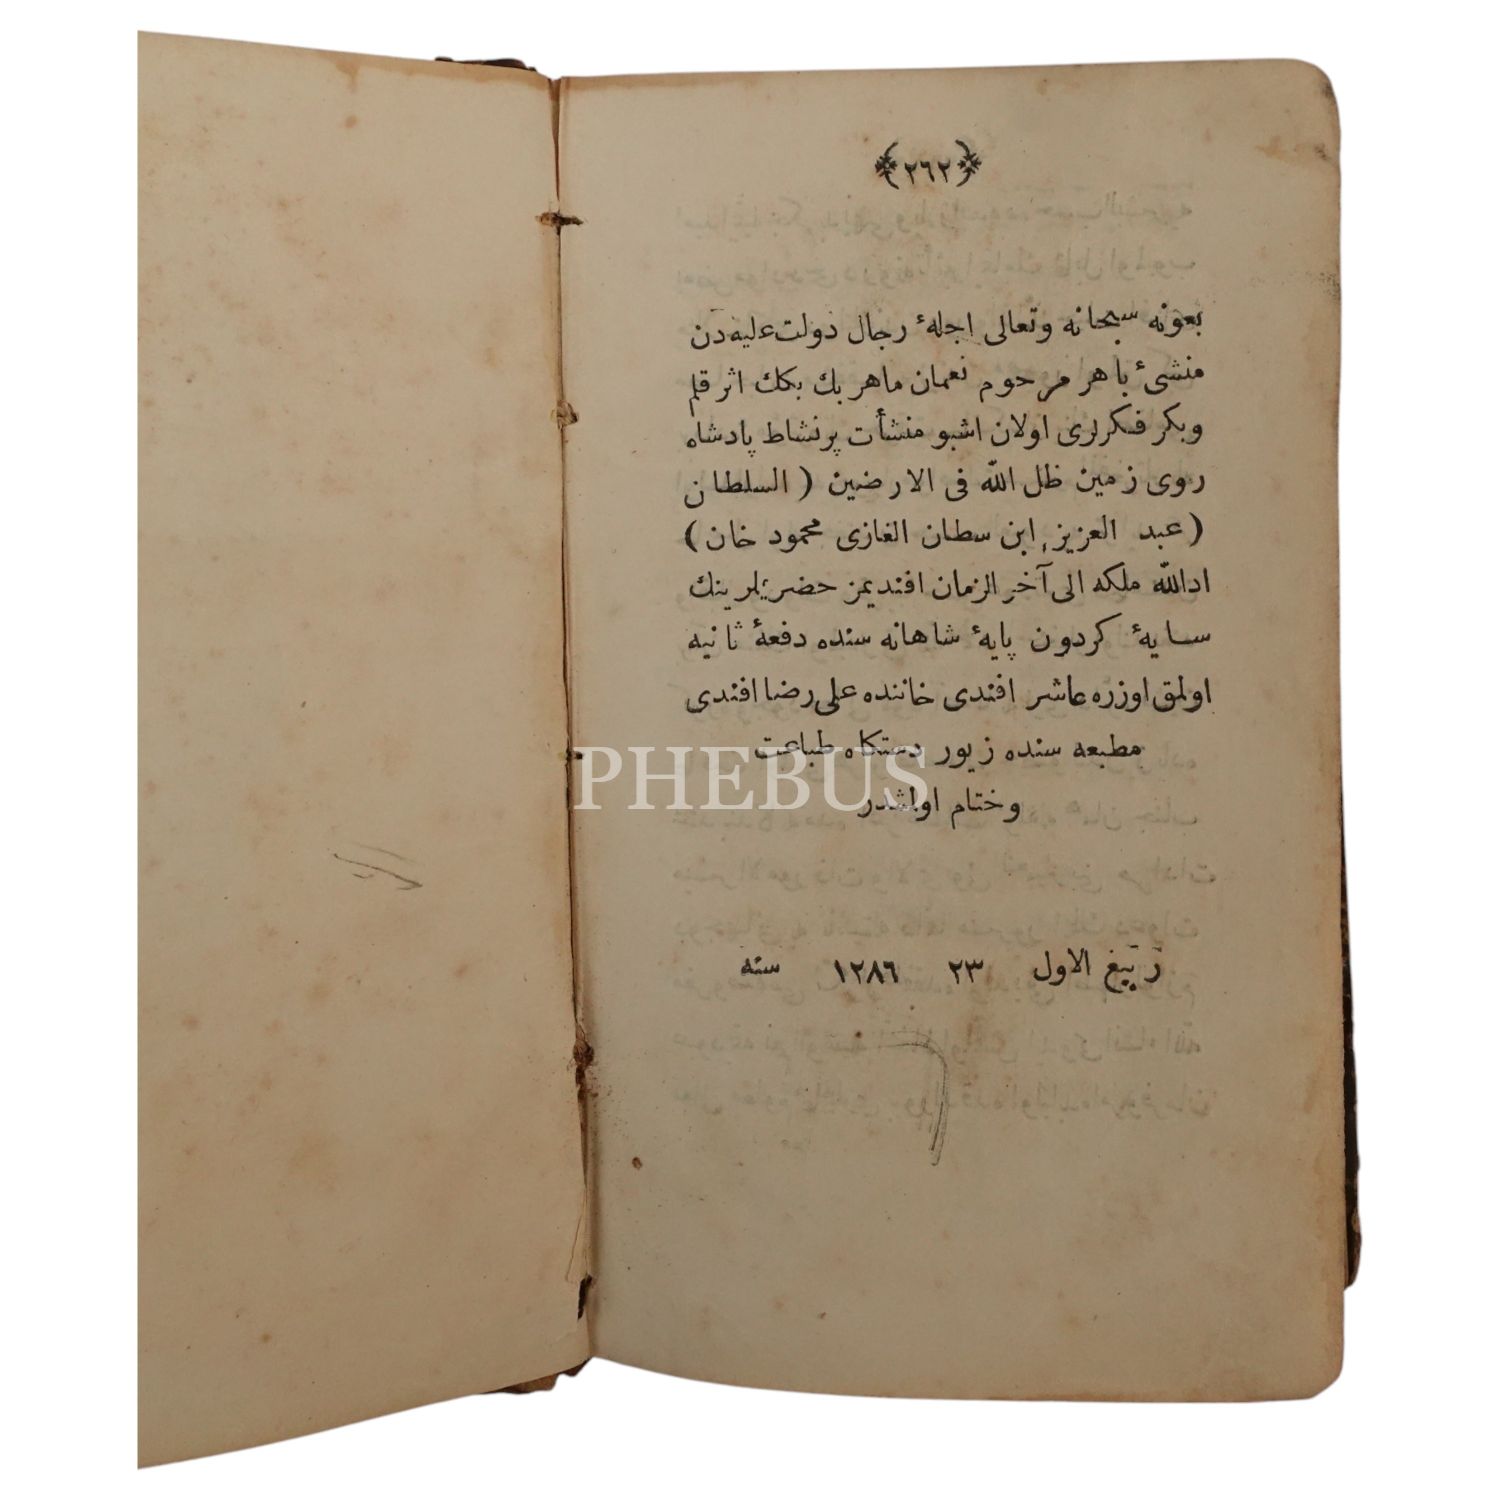 ﴿٢٦٢﴾
بعونه سبحانه وتعالی اجلهٔ رجال دولت علیه دن
منشیٔ باهر مرحوم نعمان ماهر بك بكك اثر قلم
وبكر فكرلری اولان اشبو منشأت پرنشاط پادشاه
روی زمین ظل الله فی الارضین ( السلطان
(عبد العزیز ابن سطان الغازی محمود خان)
ادالله ملكه الی آخر الزمان افندیمز حضرتلرینك
سایهٔ كردون پایهٔ شاهانه سنده دفعهٔ ثانیه
اولمق اوزره عاشر افندی خاننده علی رضا افندی
مطبعه سنده زیور دستكاه طباعت
وختام اولمشدر
الاول ٢٣ ١٢٨٦ سنه
PHEBUS